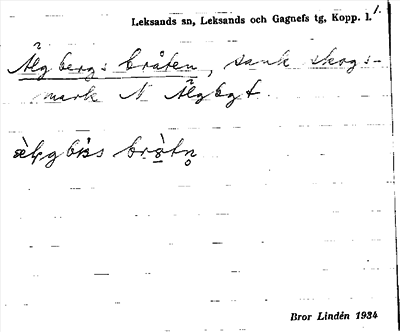 1.
Leksands sn, Leksands och Gagnefs tg, Kopp. l.
Älgberg:s bråten, sank skogs:-
mark N Älgbgt.
Bror Lindén 1934